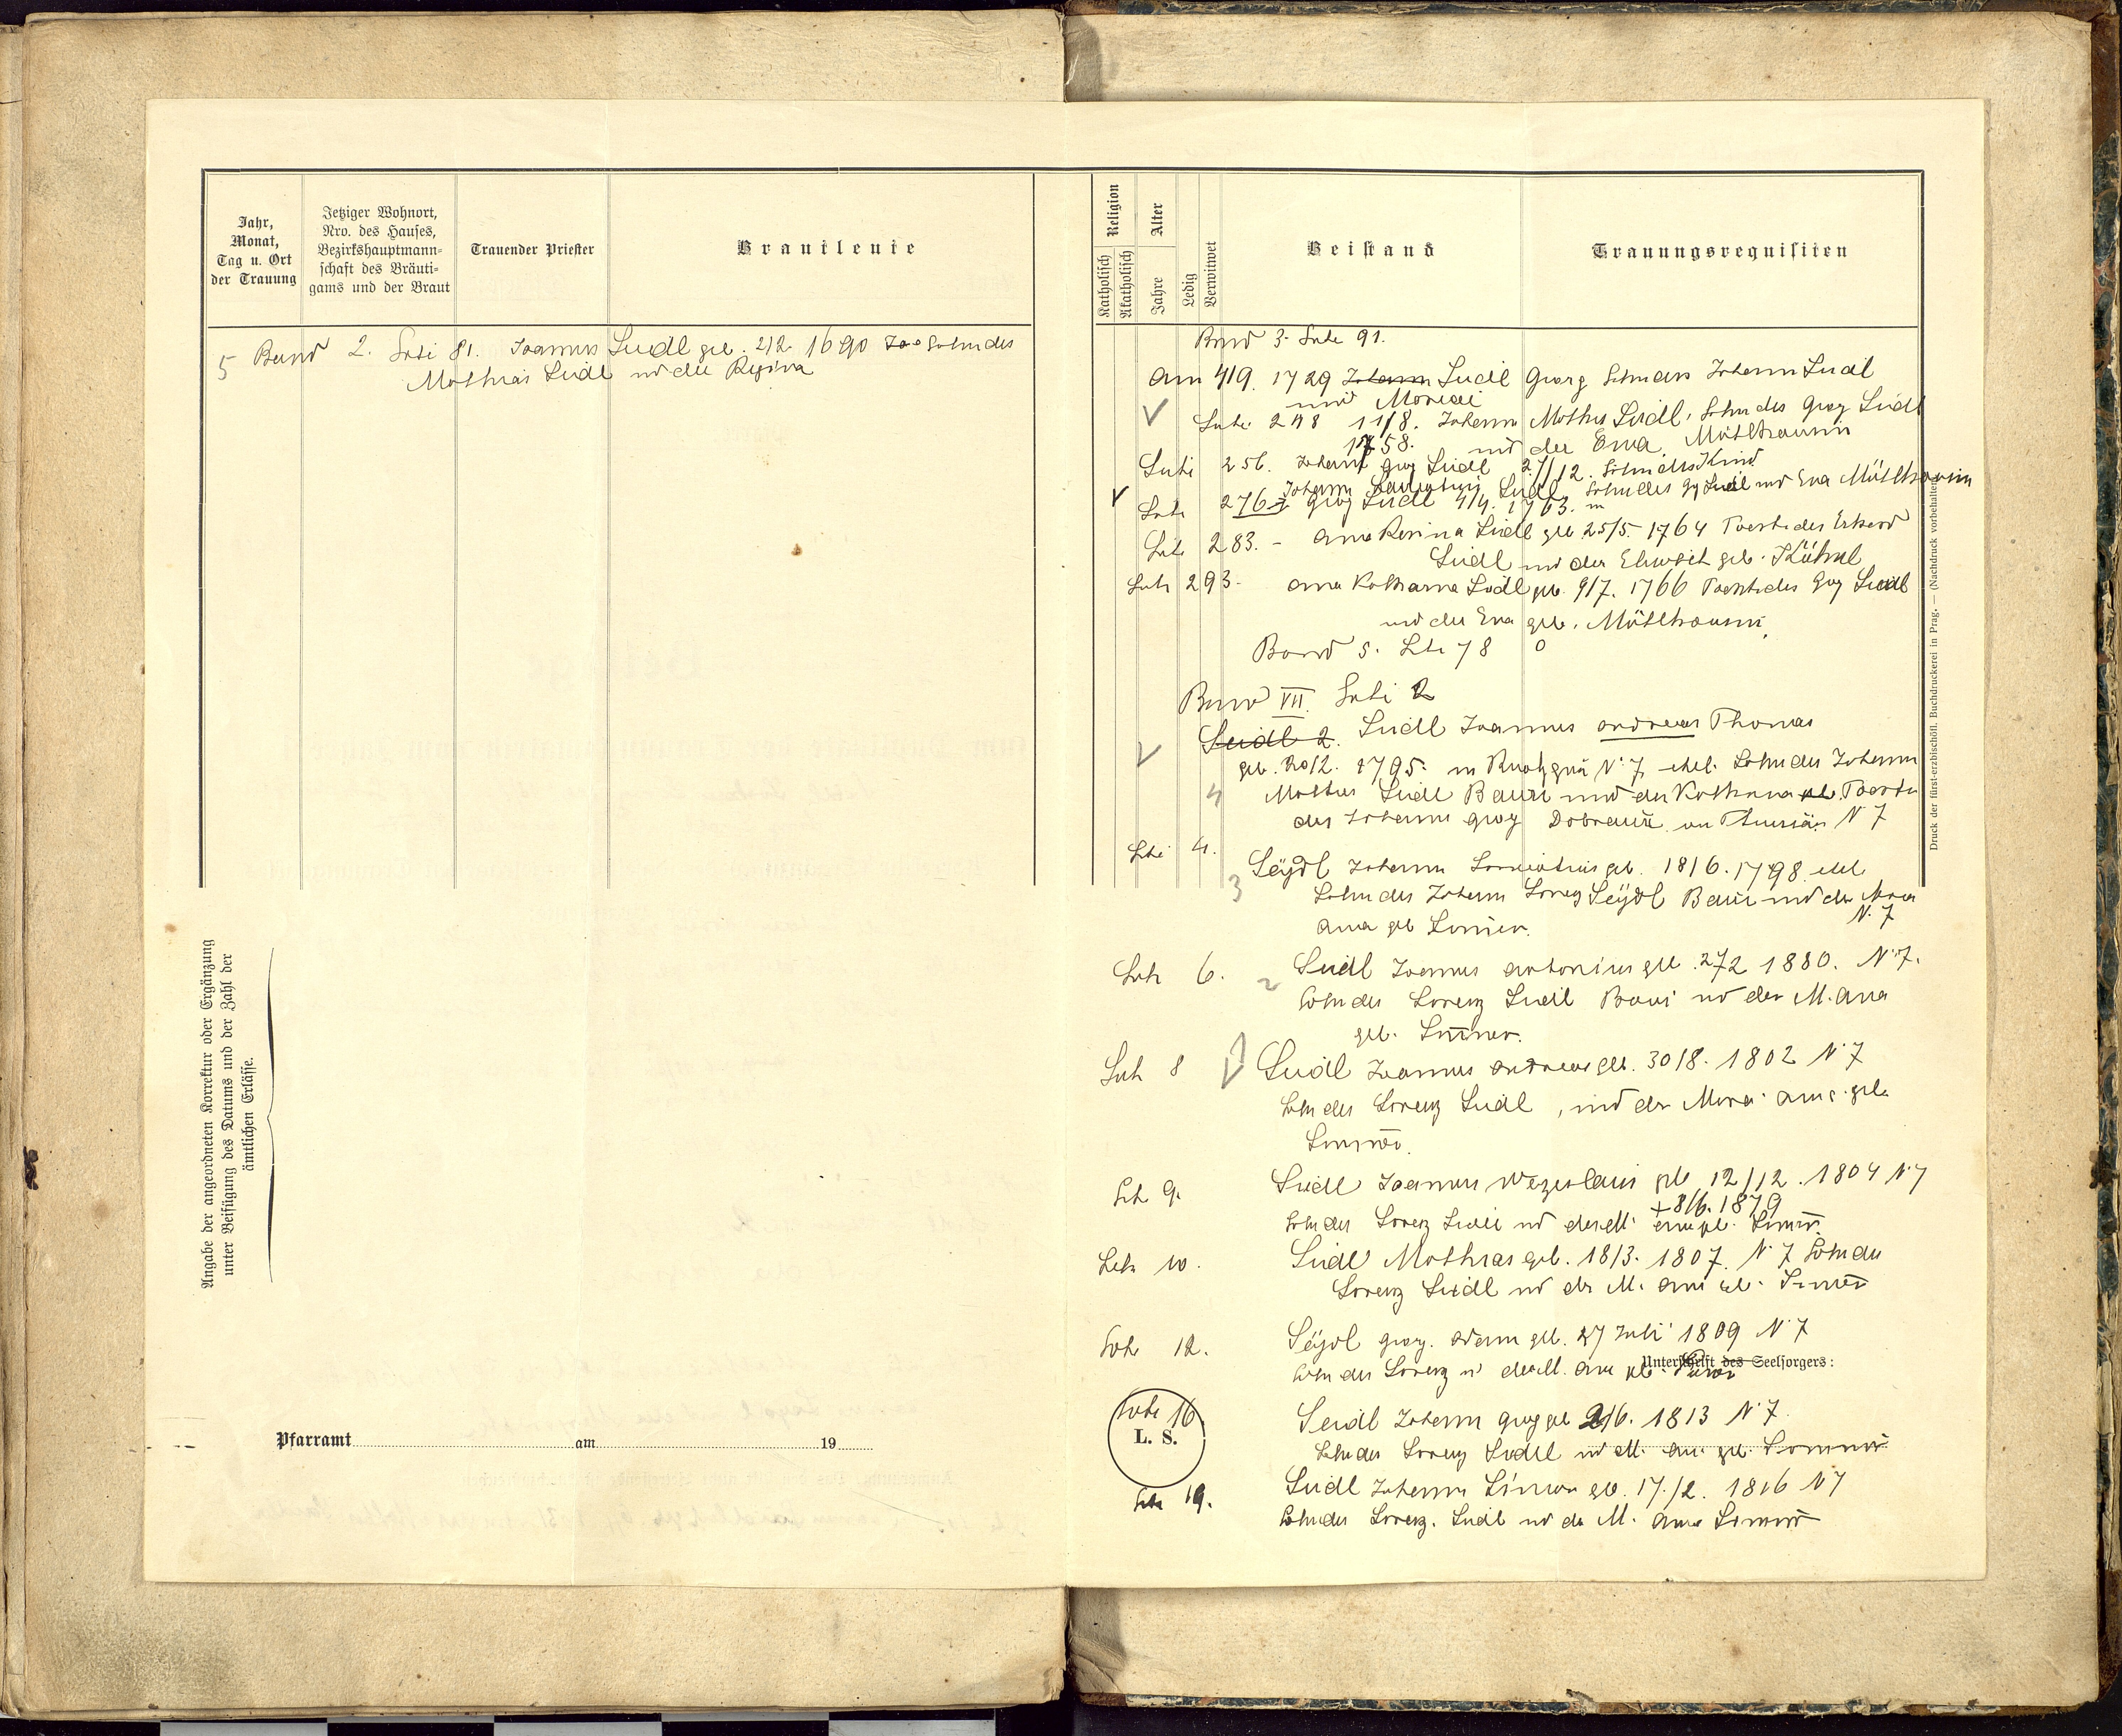 Jahr,
Monat,
Tag u. Ort
der Trauung
Jetziger Wohnort,
Nro. des Hauses,
Bezirkshauptmann-
schaft des Bräuti-
gams und der Braut
Trauender Priester
Brautleute
5 Band 2. Seite 81. Joannes Seidl geb. 2/2 1690 Sohn des
Mathias Seidl und der Regina
Angabe der angeordneten Korrektur oder Ergänzung
unter Beifügung des Datums und der Zahl der
ämtlichen Erlässe.
Pfarramt am 19
Religion
Katholisch
Akatholisch
Alter
Jahre
Ledig
Verwitwet
Beistand
Trauungsrequisiten
Band 3. Seite 91.
Am 4/9. 1729 Johann Seidl Georg Sohn des Johann Seidl
und Maria
Seite 248 11/8. Johann Mathes Seidl, Sohn des Georg Seidl
1758. und der Eva Mühlhansin
Seite 256. Johann Georg Seidl 27/12.
Johann Seidl, Sohn des Gg Seidl und Eva Mühlhansin
Seite 276 Georg Seidl 4/4. 1763.
Seite 283. - Anna Rosina Seidl geb 25/5. 1764 Tocht. des
Seidl und der geb. Kühnl
Seite 293- Anna Katharina Seidl geb. 9/7. 1766 Tocht des Georg Seidl
und der Eva geb. Mühlhansin
Band 5. Seite 78 0
Band VII. Seite 2
Seidl 2. Seidl Joannes Andreas Thomas
geb. 20/12. 1795. in N. 7 ehel. Sohn des Johann
4 Mathes Seidl Bauer und der Katharina geb. Tochter
des Johann Georg N 7
Seite 4.
3 Seÿdl Johann geb. 18/6. 1798 ehel
Sohn des Johann Lorenz Seÿdl Bauer und der Maria
N. 7
Anna geb
Seite 6. 2 Seidl Joannes Antonius geb. 27/2 1880. N. 7.
Sohn des Lorenz Seidl Bauer und der M. Anna
geb.
Seite 8 Seidl Joannes Andreas geb. 30/8. 1802 N 7
Sohn des Lorenz Seidl, und der Maria Anna geb.
Seite 9. Seidl Joannes Wezeslaus geb 12/12. 1804 N 7
+ 8/6. 1879
Sohn des Lorenz Seidl und der M. Anna geb.
Seite 10. Seidl Mathias geb. 18/3. 1807. N 7 Sohn des
Lorenz Seidl und der M. Anna geb.
Seite 12. Seÿdl Georg Adam geb. 27 Juli 1809 N 7
Unterschrift des Seelsorgers:
Sohn des Lorenz u der M. Anna geb.
Seite 16 Seidl Johann Georg geb 2/6. 1813 N 7.
L. S.
Sohn des Lorenz Seidl und M. Anna geb.
Seite 19. Seidl Johann Simon geb. 17/2. 1816 N 7
Sohn des Lorenz Seidl und der M. Anna
Druck der fürst-erzbischöfl. Buchdruckerei in Prag. — (Nachdruck vorbehalten.)